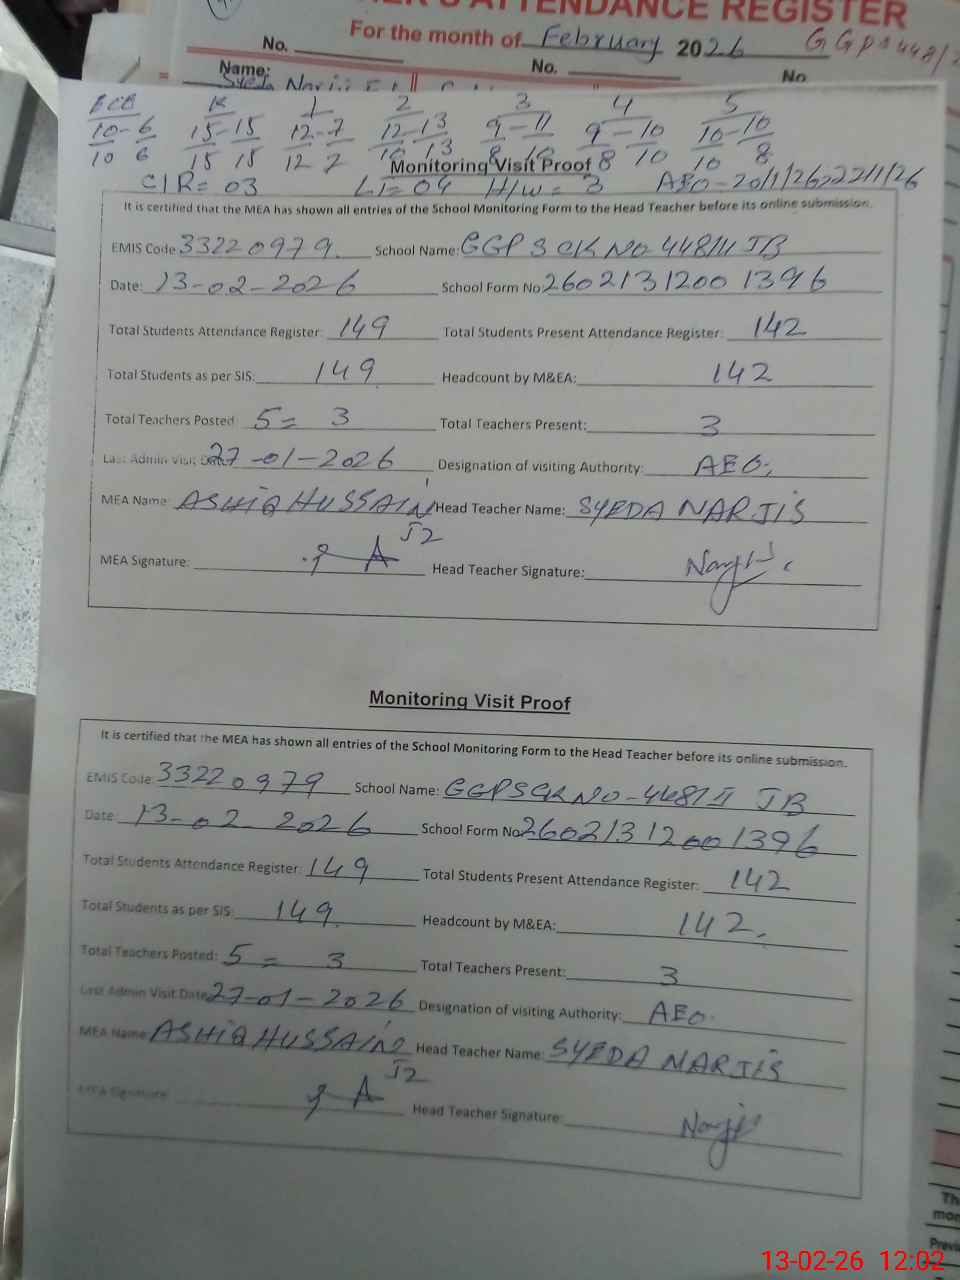 TEACHER'S ATTENDANCE REGISTER
For the month of February 2026 GGPS 448/
No. No. No
Name: Syeda Narjis
ECE K 1 2 3 4 5
10-6 15-15 12-7 12-13 9-11 9-10 10-10
10 6 15 15 12 7 10 13 8 10 8 10 10 8
Monitoring Visit Proof
CIR= 03 LI=04 H/W= 3 AEO-20/1/26,22/1/26
It is certified that the MEA has shown all entries of the School Monitoring Form to the Head Teacher before its online submission.
EMIS Code 33220979. School Name: GGPS CK NO 448/II JB
Date: 13-02-2026 School Form No 26021312001396
Total Students Attendance Register: 149 Total Students Present Attendance Register: 142
Total Students as per SIS: 149 Headcount by M&EA: 142
Total Teachers Posted 5= 3 Total Teachers Present: 3
Last Admin Visit Date 27-01-2026 Designation of visiting Authority: AEO.
MEA Name: ASHIQ HUSSAIN Head Teacher Name: SYEDA NARJIS
52
MEA Signature: Head Teacher Signature: Narjis
Monitoring Visit Proof
It is certified that the MEA has shown all entries of the School Monitoring Form to the Head Teacher before its online submission.
EMIS Code: 33220979 School Name: GGPS CK NO-448/II JB
Date: 13-02-2026 School Form No 26021312001396
Total Students Attendance Register: 149 Total Students Present Attendance Register: 142
Total Students as per SIS: 149. Headcount by M&EA: 142.
Total Teachers Posted: 5 = 3 Total Teachers Present: 3
Last Admin Visit Date 27-01-2026 Designation of visiting Authority: AEO.
MEA Name ASHIQ HUSSAIN Head Teacher Name: SYEDA NARJIS
52
MEA Signature: Head Teacher Signature: Narjis
13-02-26 12:02